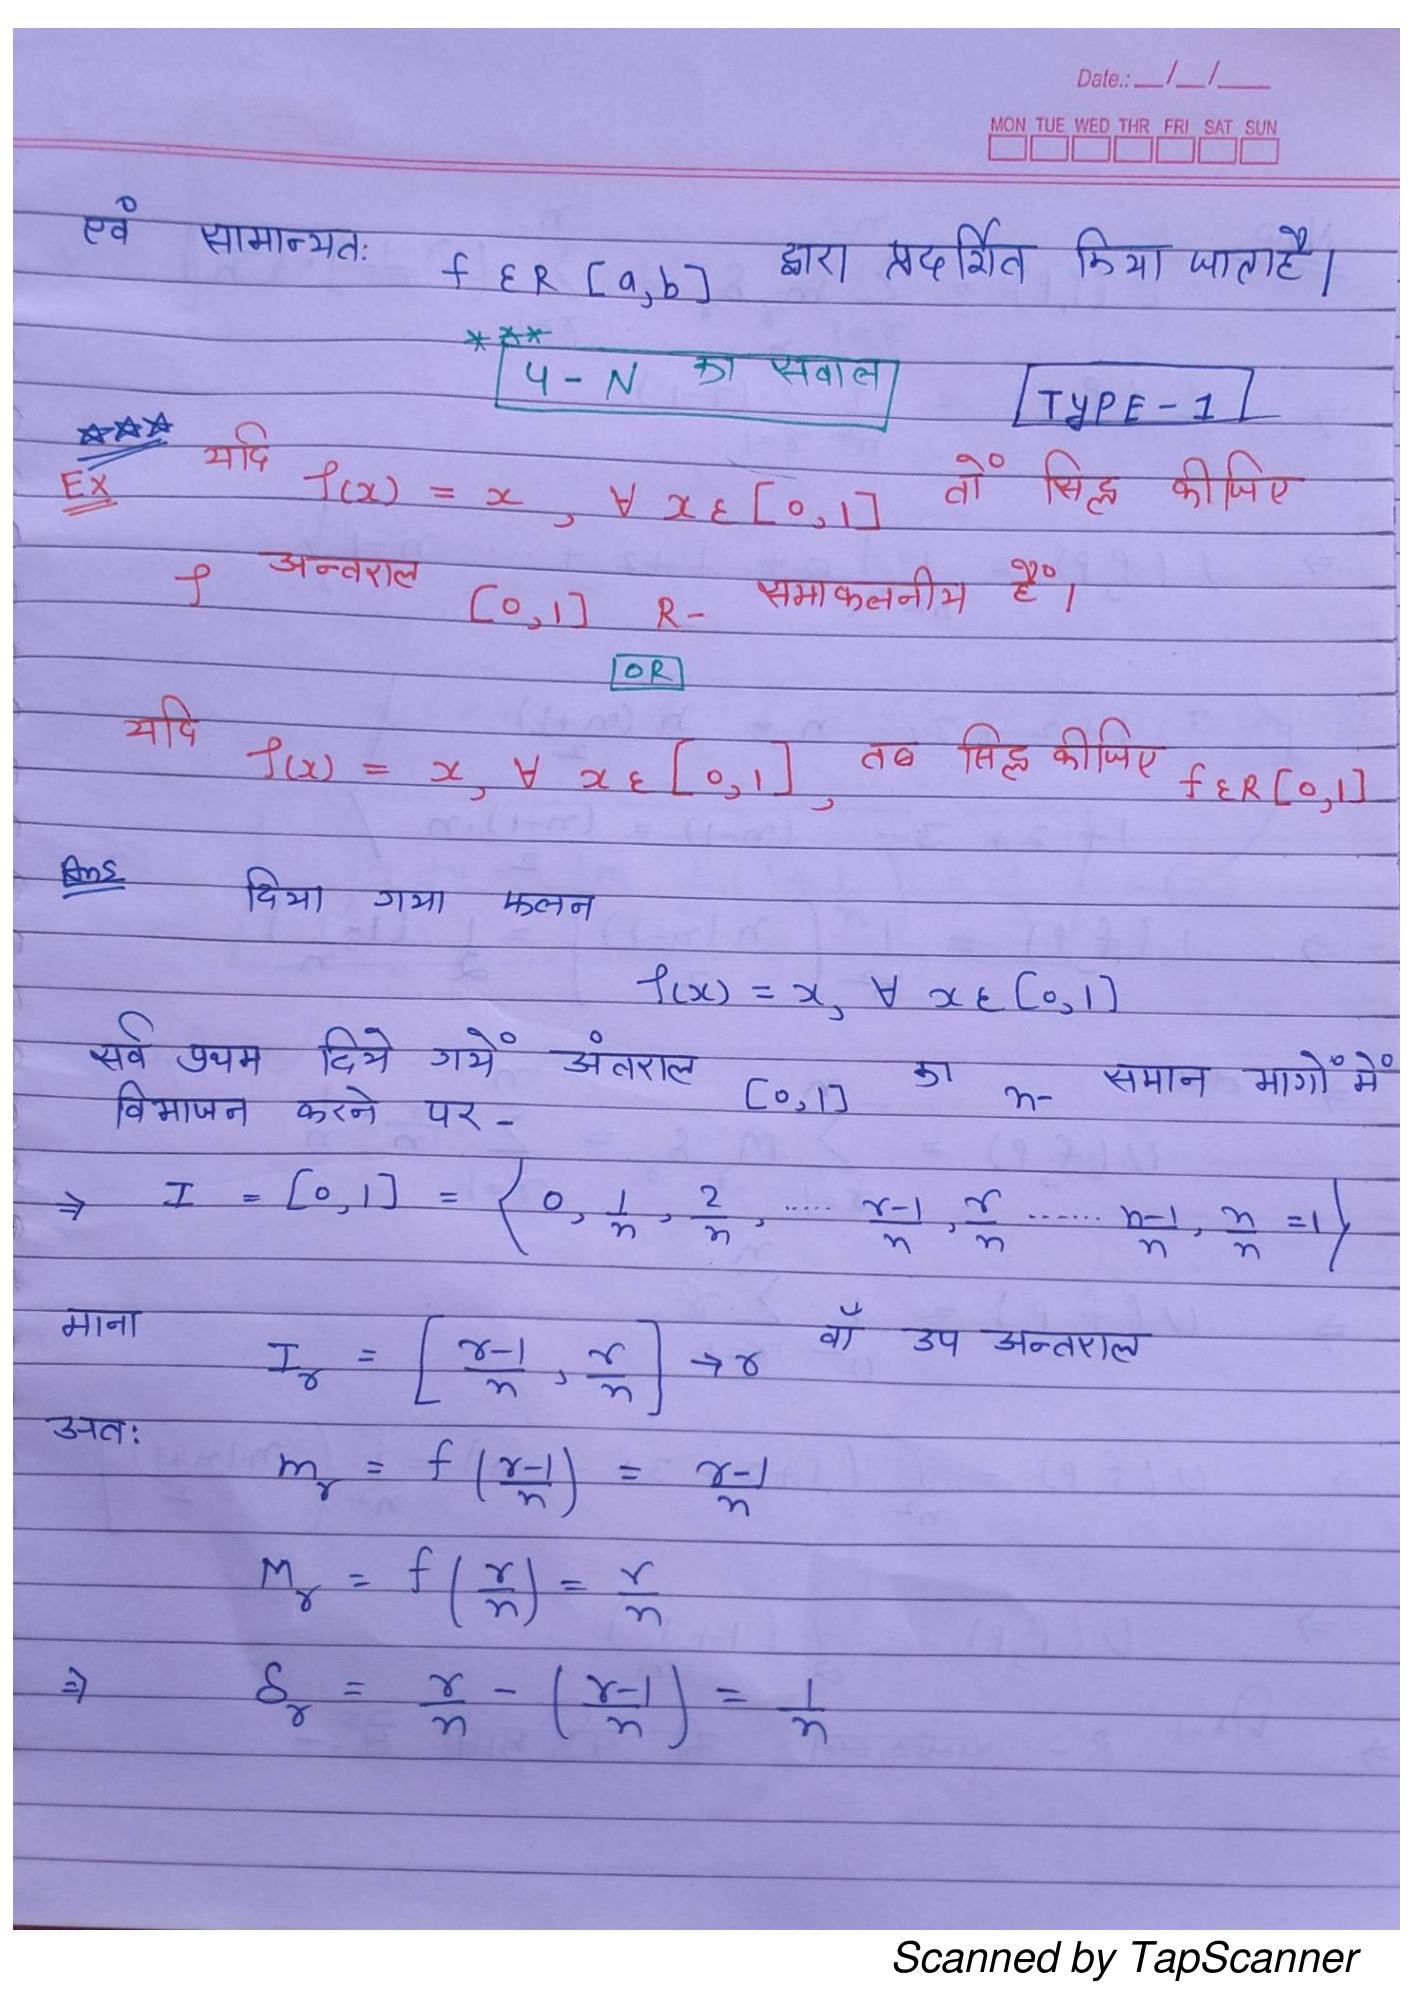 Date.: __/__/__
MON TUE WED THR FRI SAT SUN
एवं सामान्यतः f ε R [a,b] द्वारा प्रदर्शित किया जाता है।
***
4 - N का सवाल TYPE - 1
Ex यदि f(x) = x, ∀ x ε [0,1] तों सिद्ध कीजिए
f अन्तराल [0,1] R- समाकलनीय हैं।
OR
यदि f(x) = x, ∀ x ε [0,1], तब सिद्ध कीजिए f ε R [0,1]
Ans दिया गया फलन
f(x) = x, ∀ x ε [0,1]
सर्व प्रथम दिये गयें अंतराल [0,1] का n- समान भागों में
विभाजन करने पर -
⇒ I = [0,1] = { 0, 1/n, 2/n, ..... r-1/n, r/n ...... n-1/n, n/n = 1 }
माना I_r = [ r-1/n, r/n ] → r वाँ उप अन्तराल
अतः
m_r = f ( r-1/n ) = r-1/n
M_r = f ( r/n ) = r/n
⇒ δ_r = r/n - ( r-1/n ) = 1/n
Scanned by TapScanner